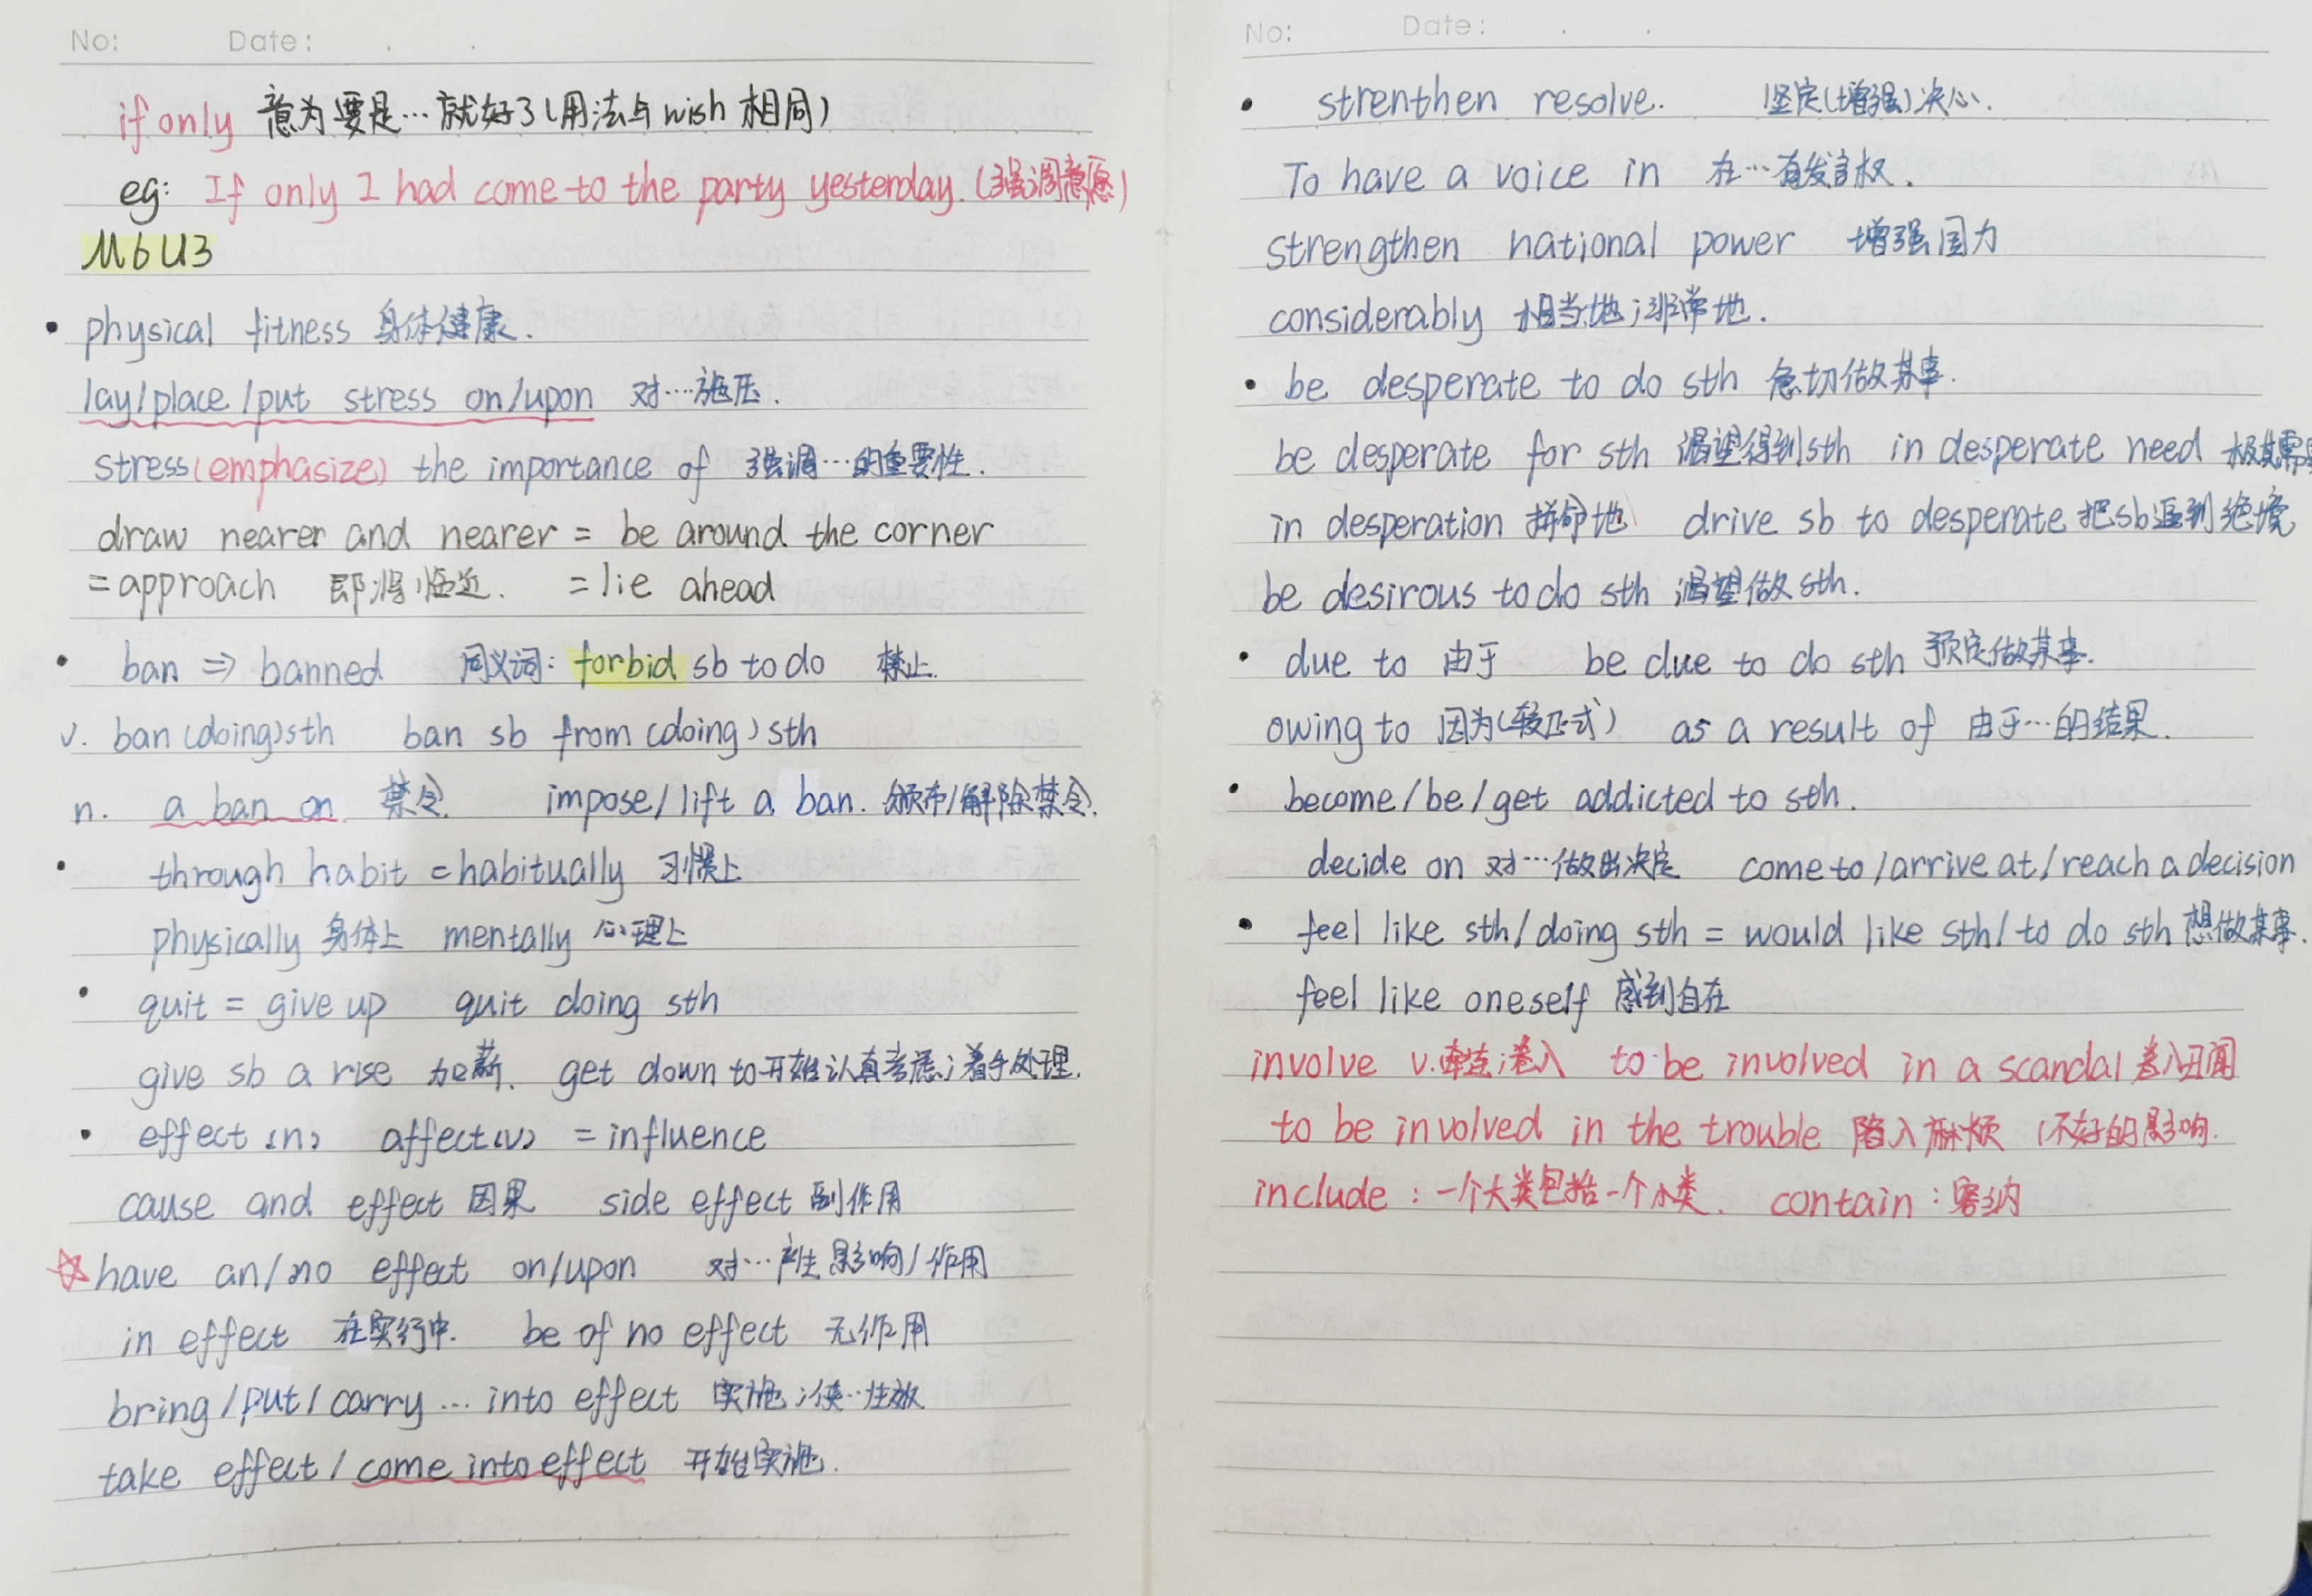 No: Date: . .
if only 意为要是…就好了(用法与wish 相同)
eg: If only I had come to the party yesterday.(强调意愿)
M6U3
• physical fitness 身体健康.
lay/place/put stress on/upon 对…施压.
stress(emphasize) the importance of 强调…的重要性.
draw nearer and nearer = be around the corner
=approach 即将临近. =lie ahead
• ban ⇒ banned 同义词: forbid sb to do 禁止.
v. ban (doing)sth ban sb from (doing) sth
n. a ban on 禁令. impose/lift a ban. 颁布/解除禁令.
• through habit =habitually 习惯上
physically 身体上 mentally 心理上
• quit = give up quit doing sth
give sb a rise 加薪. get down to开始认真考虑;着手处理.
• effect (n) affect(v) = influence
cause and effect 因果 side effect 副作用
☆have an/no effect on/upon 对…产生影响/作用
in effect 在实行中. be of no effect 无作用
bring/put/carry … into effect 实施;使…生效
take effect/come into effect 开始实施.
No: Date: . .
• strenthen resolve. 坚定(增强)决心.
To have a voice in 在…有发言权.
strengthen national power 增强国力
considerably 相当地;非常地.
• be desperate to do sth 急切做某事.
be desperate for sth 渴望得到sth in desperate need 极其需
in desperation 拼命地 drive sb to desperate 把sb逼到绝境
be desirous to do sth 渴望做sth.
• due to 由于 be due to do sth 预定做某事.
owing to 因为(较正式) as a result of 由于…的结果.
• become/be/get addicted to sth.
decide on 对…做出决定 come to/arrive at/reach a decision
• feel like sth/doing sth = would like sth/to do sth 想做某事.
feel like oneself 感到自在
involve v.牵连;卷入 to be involved in a scandal 卷入丑闻
to be involved in the trouble 陷入麻烦 (不好的影响.
include : 一个大类包括一个小类. contain : 容纳